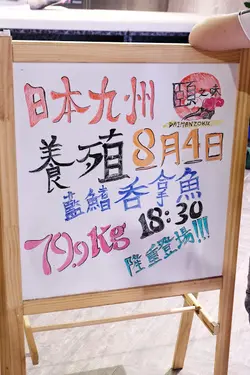 日本九州
頂之味
DAIMANZOKU
養殖8月4日
藍鰭吞拿魚
79.9Kg 18:30
隆重登場!!!